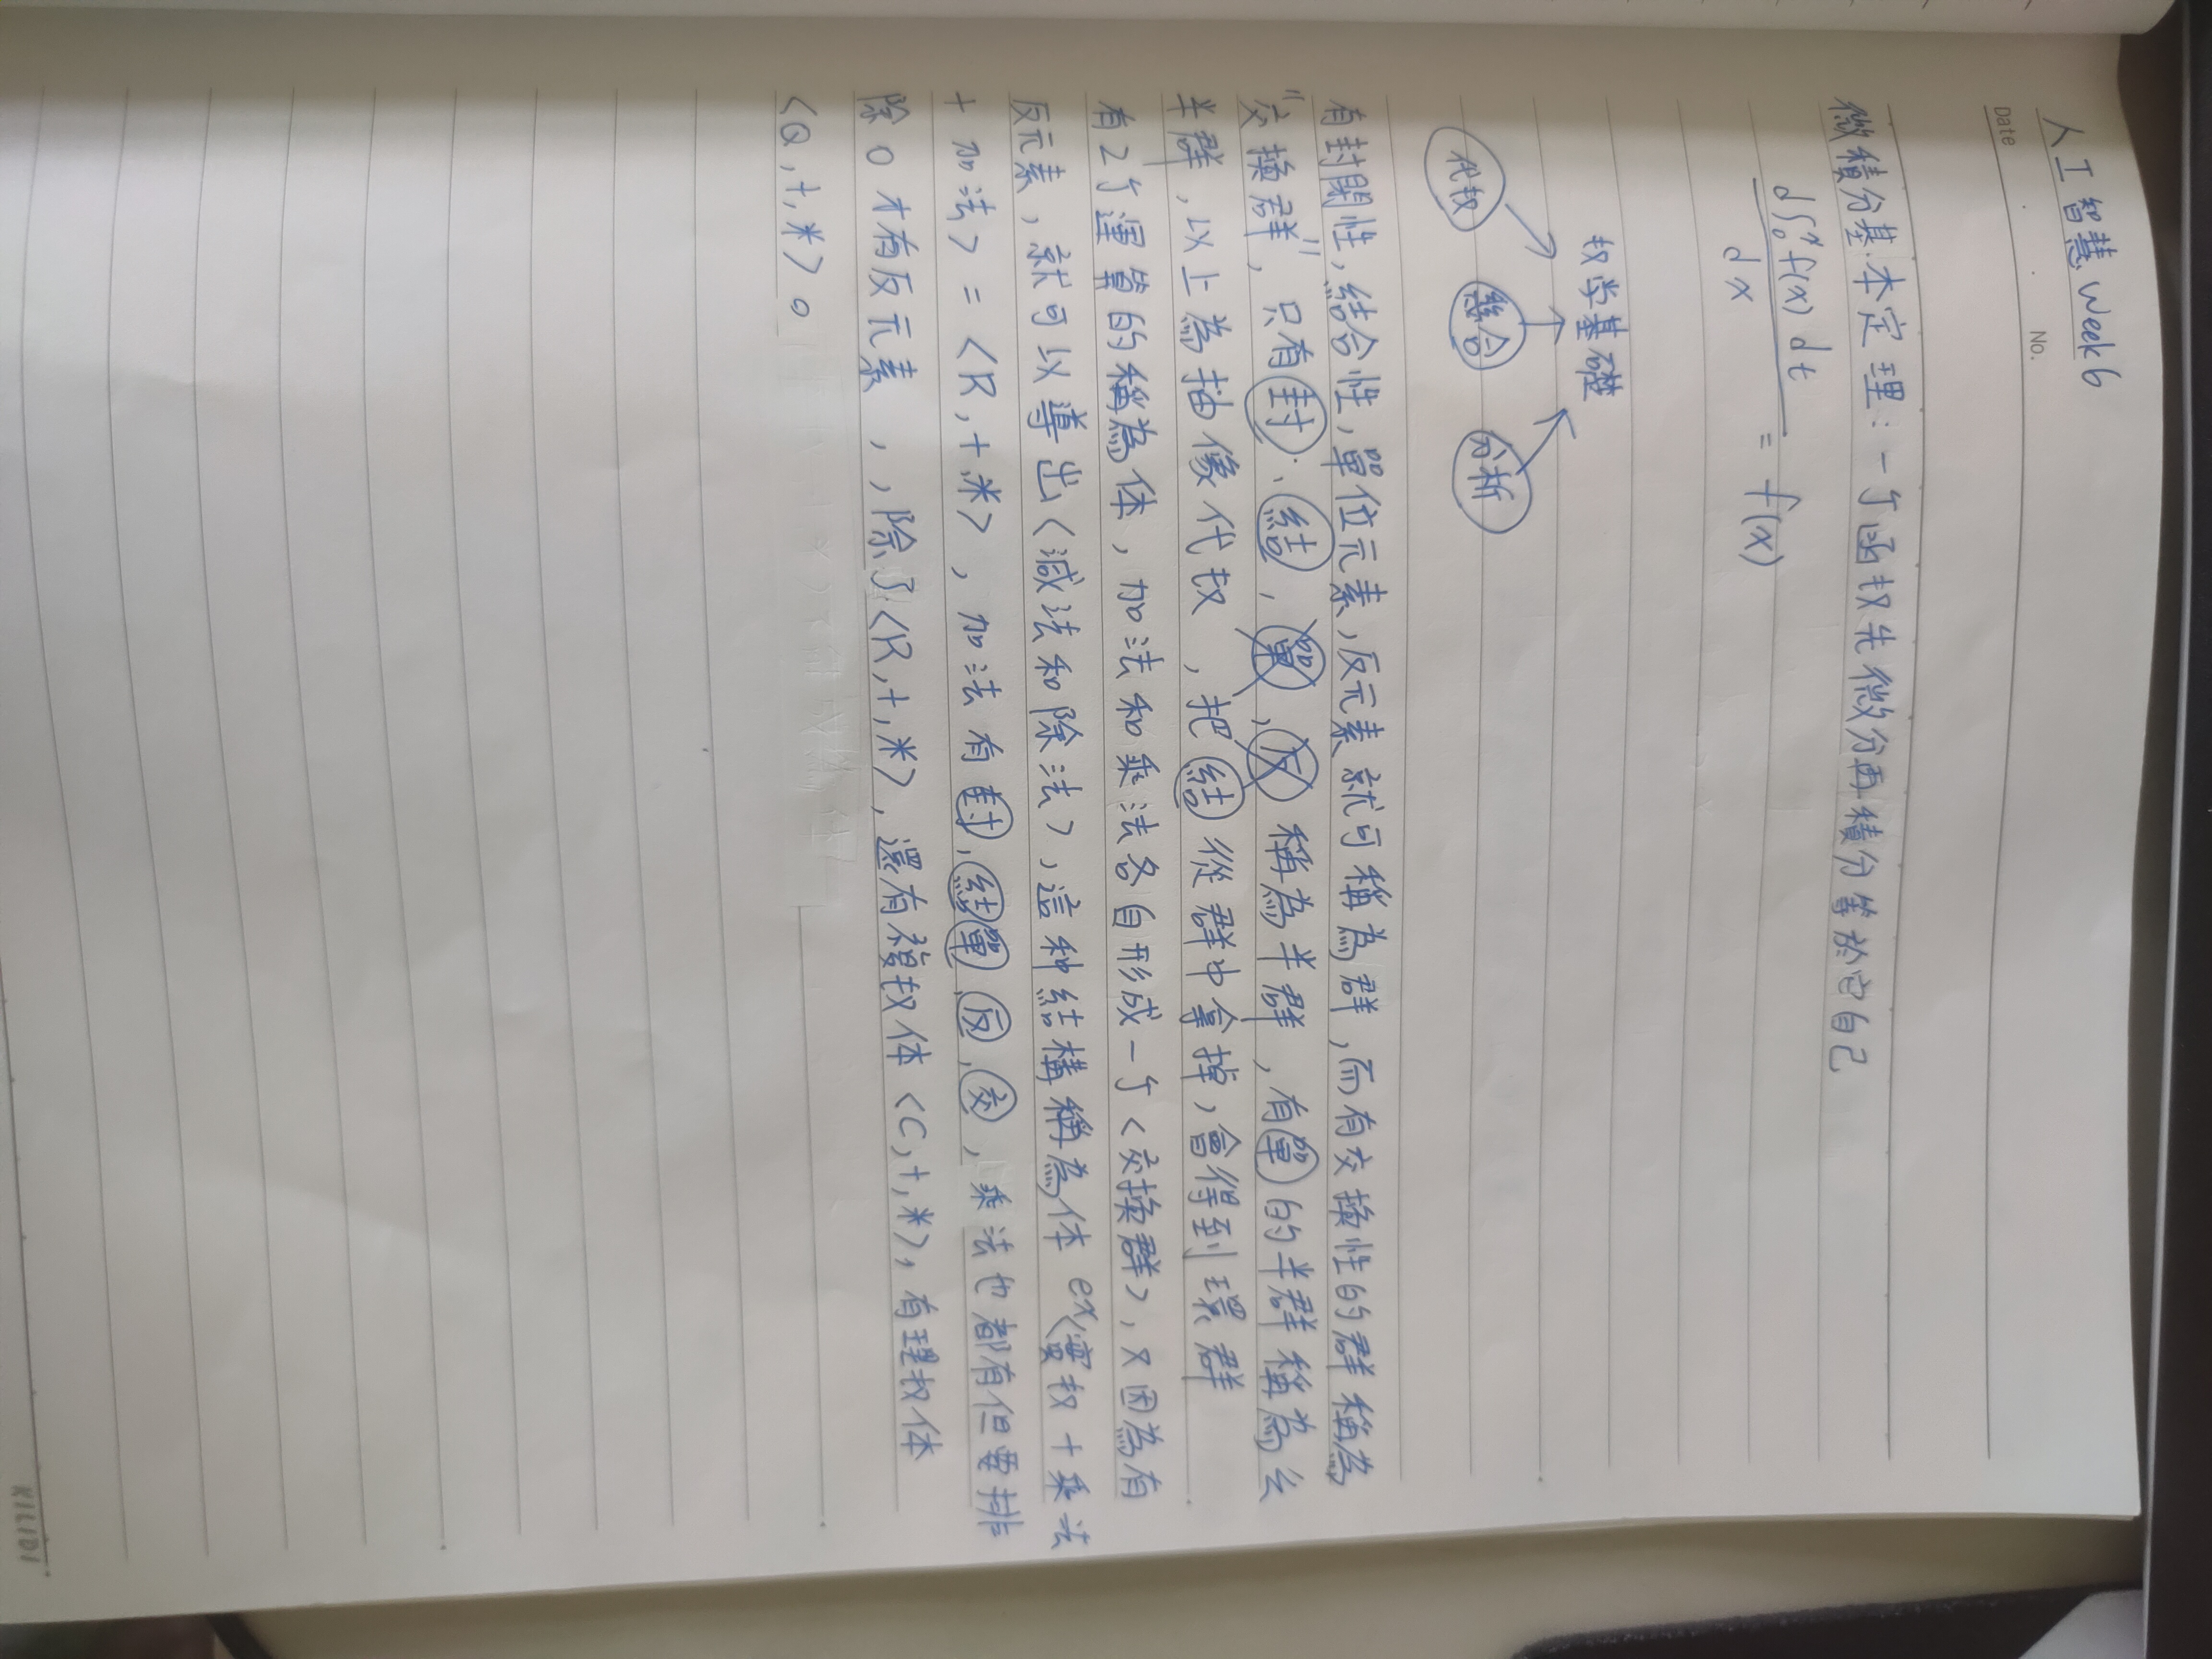 人工智慧 Week 6
Date . . No.
微積分基本定理：一个函权先微分再積分等於它自己
d∫₀ˣ f(x) dt
dx
= f(x)
权学基礎
代权 幾合 分析
有封閉性,結合性,單位元素,反元素就可稱為群,而有交換性的群稱為
"交換群",只有封、結,單,反稱為半群,有單的半群稱為么
半群,以上為抽像代权,把結從群中拿掉,會得到環群
有2个運算的稱為体,加法和乘法各自形成一个<交換群>,又因為有
反元素,就可以導出<減法和除法>,這种結構稱為体 ex<實权+乘法
+加法> = <R,+,*>,加法有封,結單,反,交,乘法也都有但要排
除0才有反元素,,除了<R,+,*>,還有複权体<C,+,*>,有理权体
<Q,+,*>。
KILIDI